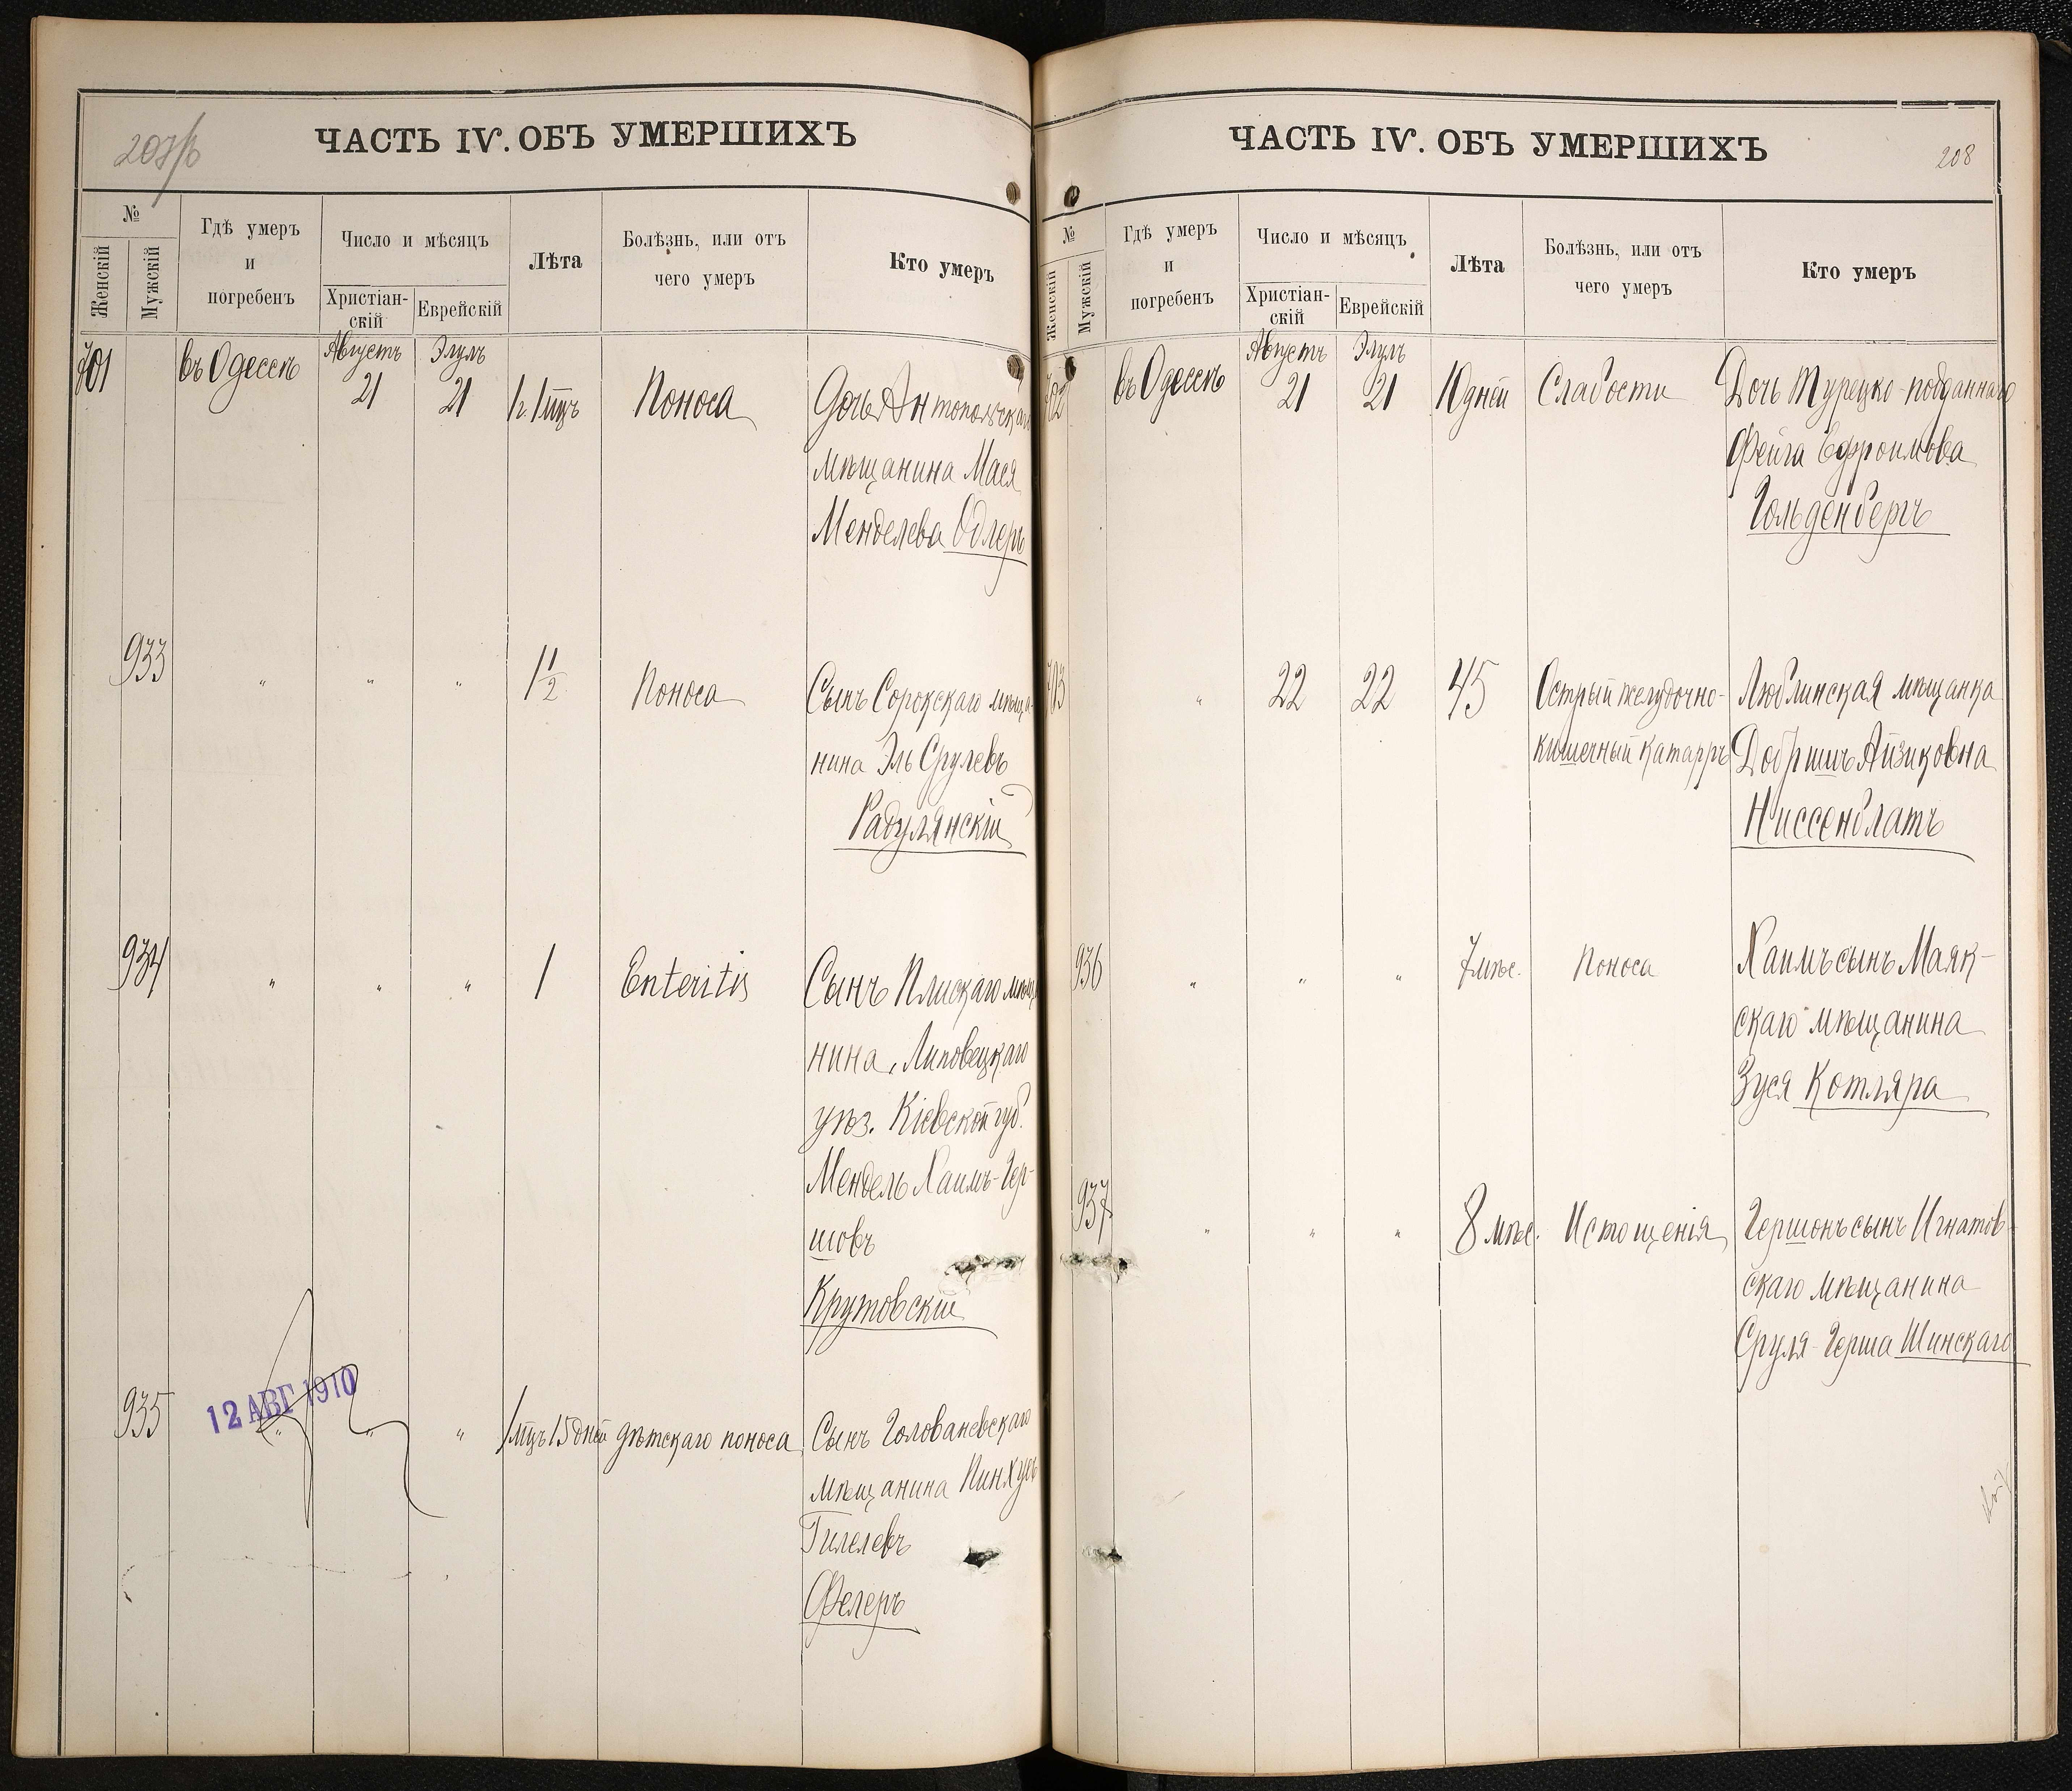 ЧАСТЬ IV. ОБЪ УМЕРШИХЪ
№
Женскій
Мужскій
Гдѣ умеръ
и
погребенъ
Число и мѣсяцъ
Христіан-
скій
Еврейскій
Лѣта
Болѣзнь, или отъ
чего умеръ
Кто умеръ
701
въ Одессѣ
Августъ
21
Элулъ
21
Поноса
Дочь Антопольскаго
мѣщанина Мася
Менделева Одлеръ
933
"
"
"
1 1/2
Поноса
Сынъ Сорокскаго мѣща-
нина Эль Срулевъ
Радулянскій
934
"
"
"
1
Enteritis
Сынъ Плискаго мѣща
нина, Липовецкаго
уѣз. Кіевской губ.
Мендель Хаимъ-Гер-
шовъ
Крутовскій
935
12 АВГ 1910
"
"
"
1 мцъ 15 дней
дѣтскаго поноса
Сынъ Голованевскаго
мѣщанина Пинхусъ
Гилелевъ
Фелеръ
ЧАСТЬ IV. ОБЪ УМЕРШИХЪ
208
№
Женскій
Мужскій
Гдѣ умеръ
и
погребенъ
Число и мѣсяцъ
Христіан-
скій
Еврейскій
Лѣта
Болѣзнь, или отъ
чего умеръ
Кто умеръ
702
въ Одессѣ
Августъ
21
Элулъ
21
10 дней
Слабости
Дочь Турецко-подданнаго
Фейга Ефроимова
Гольденбергъ
703
"
22
22
45
Острый желудочно-
кишечный катарръ
Люблинская мѣщанка
Добришъ Айзиковна
Ниссенблатъ
936
"
"
"
7 мѣс.
Поноса
Хаимъ сынъ Маяк-
скаго мѣщанина
Зуся Котляра
937
"
"
"
8 мѣс.
Истощенія
Гершонъ сынъ Игнатов-
скаго мѣщанина
Сруля-Герша Шинскаго